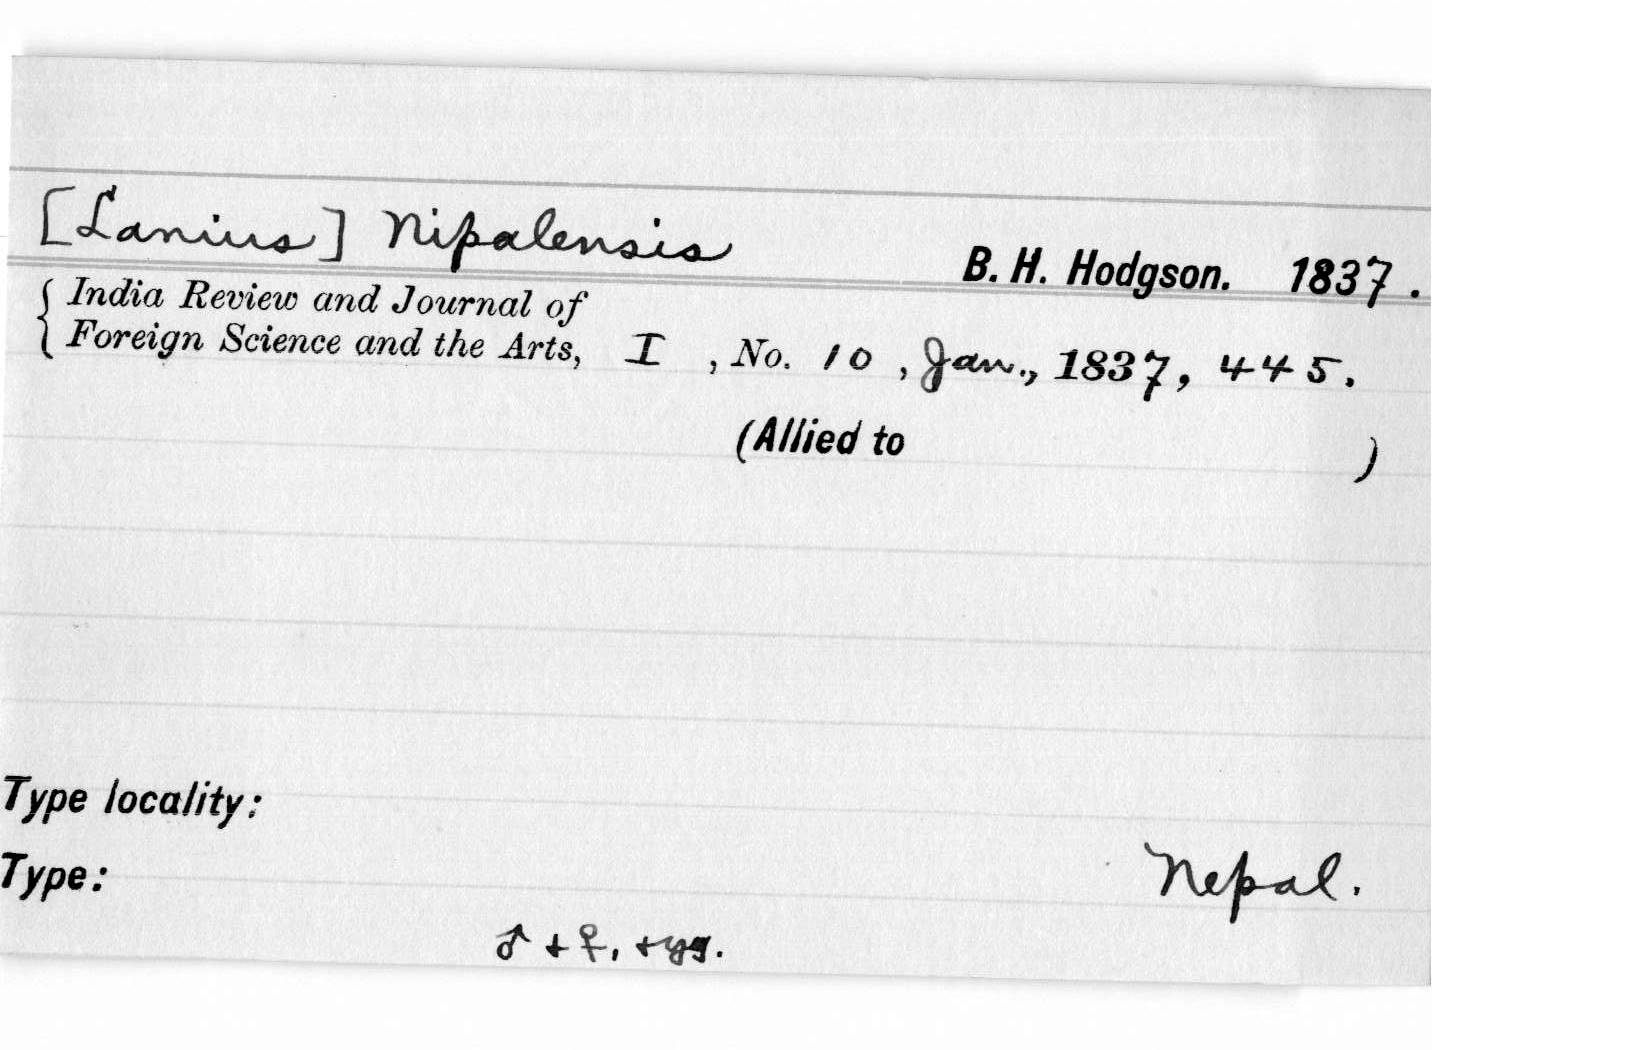 [Lanius] Nipalensis B. H. Hodgson. 1837.
India Review and Journal of
Foreign Science and the Arts, I, No. 10, Jan., 1837, 445.
(Allied to )
Type locality:
Nepal.
Type:
♂ + ♀, + yg.